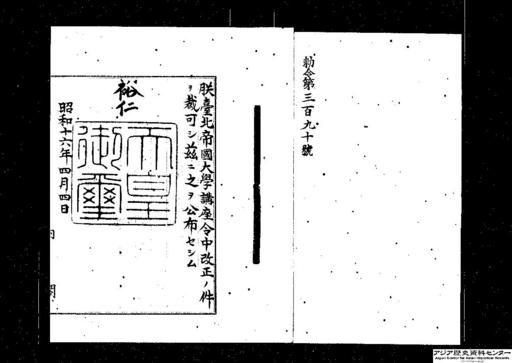 勅令第三百九十號
朕臺北帝國大學講座令中改正ノ件
ヲ裁可シ茲ニ之ヲ公布セシム
裕仁
天皇
御璽
昭和十六年四月四日
内閣
アジア歴史資料センター
Japan Center for Asian Historical Records